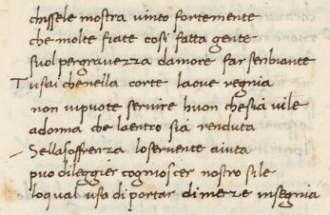 chissele mostra vinto fortemente
che molte fiate cosi fatta gente
suol per gravezza damore far senbiante
Tu sai che nella corte laove regnia
non vi puote servire huon che sia vile
a donna che laentro sia renduta
Se lla soffrenza lo servente aiuta
puo di leggier cognoscer nostro stile
lo qual usa di portar di merze insegnia